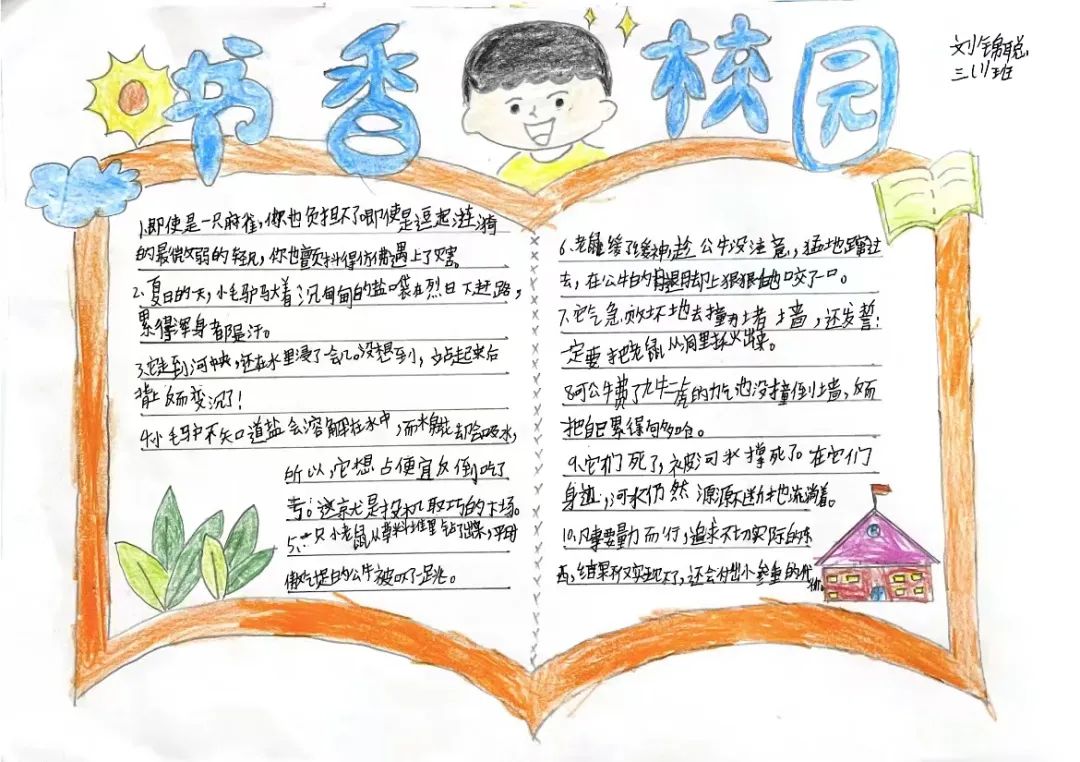 书香校园
刘锦聪
三(1)班
1.即使是一只麻雀,你也负担不了即使是逗起涟漪
的最微弱的轻风,你也颤抖得仿佛遇上了灾害。
2.夏日的天,小毛驴驮着沉甸甸的盐袋在烈日下赶路,
累得浑身都是汗。
3.它走到河中央,还在水里浸了一会儿。没想到,站起来后
背上反而变沉了!
4.小毛驴不知道盐会溶解在水中,而棉花却会吸水,
所以,它想占便宜反倒吃了
亏。这就是投机取巧的下场。
5.一只小老鼠从草料堆里钻了出来,平时
傲气足的公牛被吓了一跳。
6.老鼠缓了缓神,趁公牛没注意,猛地蹿过
去,在公牛的脚上狠狠地咬了一口。
7.它气急败坏地去撞那堵墙,还发誓:
一定要把老鼠从洞里揪出来。
8.可公牛费了九牛二虎的力气也没撞倒墙,反而
把自己累得够呛。
9.它们死了,被河水撑死了。在它们
身边,河水仍然源源不断地流淌着。
10.凡事要量力而行,追求不切实际的东
西,结果不仅实现不了,还会付出小参鱼的代价。